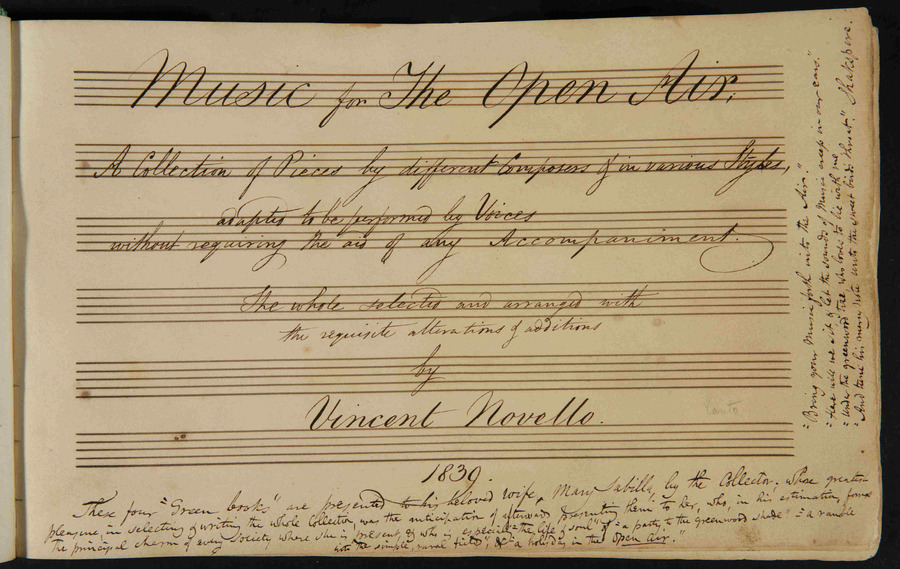 Music for The Open Air.
A Collection of Pieces by different Composers & in various Styles,
adapted to be performed by Voices
without requiring the aid of any Accompaniment.
The whole selected and arranged with
the requisite alterations & additions
by
Vincent Novello.
1839.
These four "Green books" are presented to his beloved Wife, Mary Sabilla, by the Collector. Whose greatest
pleasure, in selecting & writing the whole Collection was the anticipation of afterwards presenting them to her, who, in his estimation, forms
the principal charm of every Society where she is present, & who is especially "the life & soul" of "a party to the greenwood shade" "a ramble
into the simple, rural fields", & "a holiday in the Open Air."
"Bring your Music forth into the Air."
"Here will we sit & let the sounds of Music creep in our ears."
"Under the greenwood tree who loves to lie with me
"And tune his merry note unto the sweet bird's throat." Shakspere.
Canto